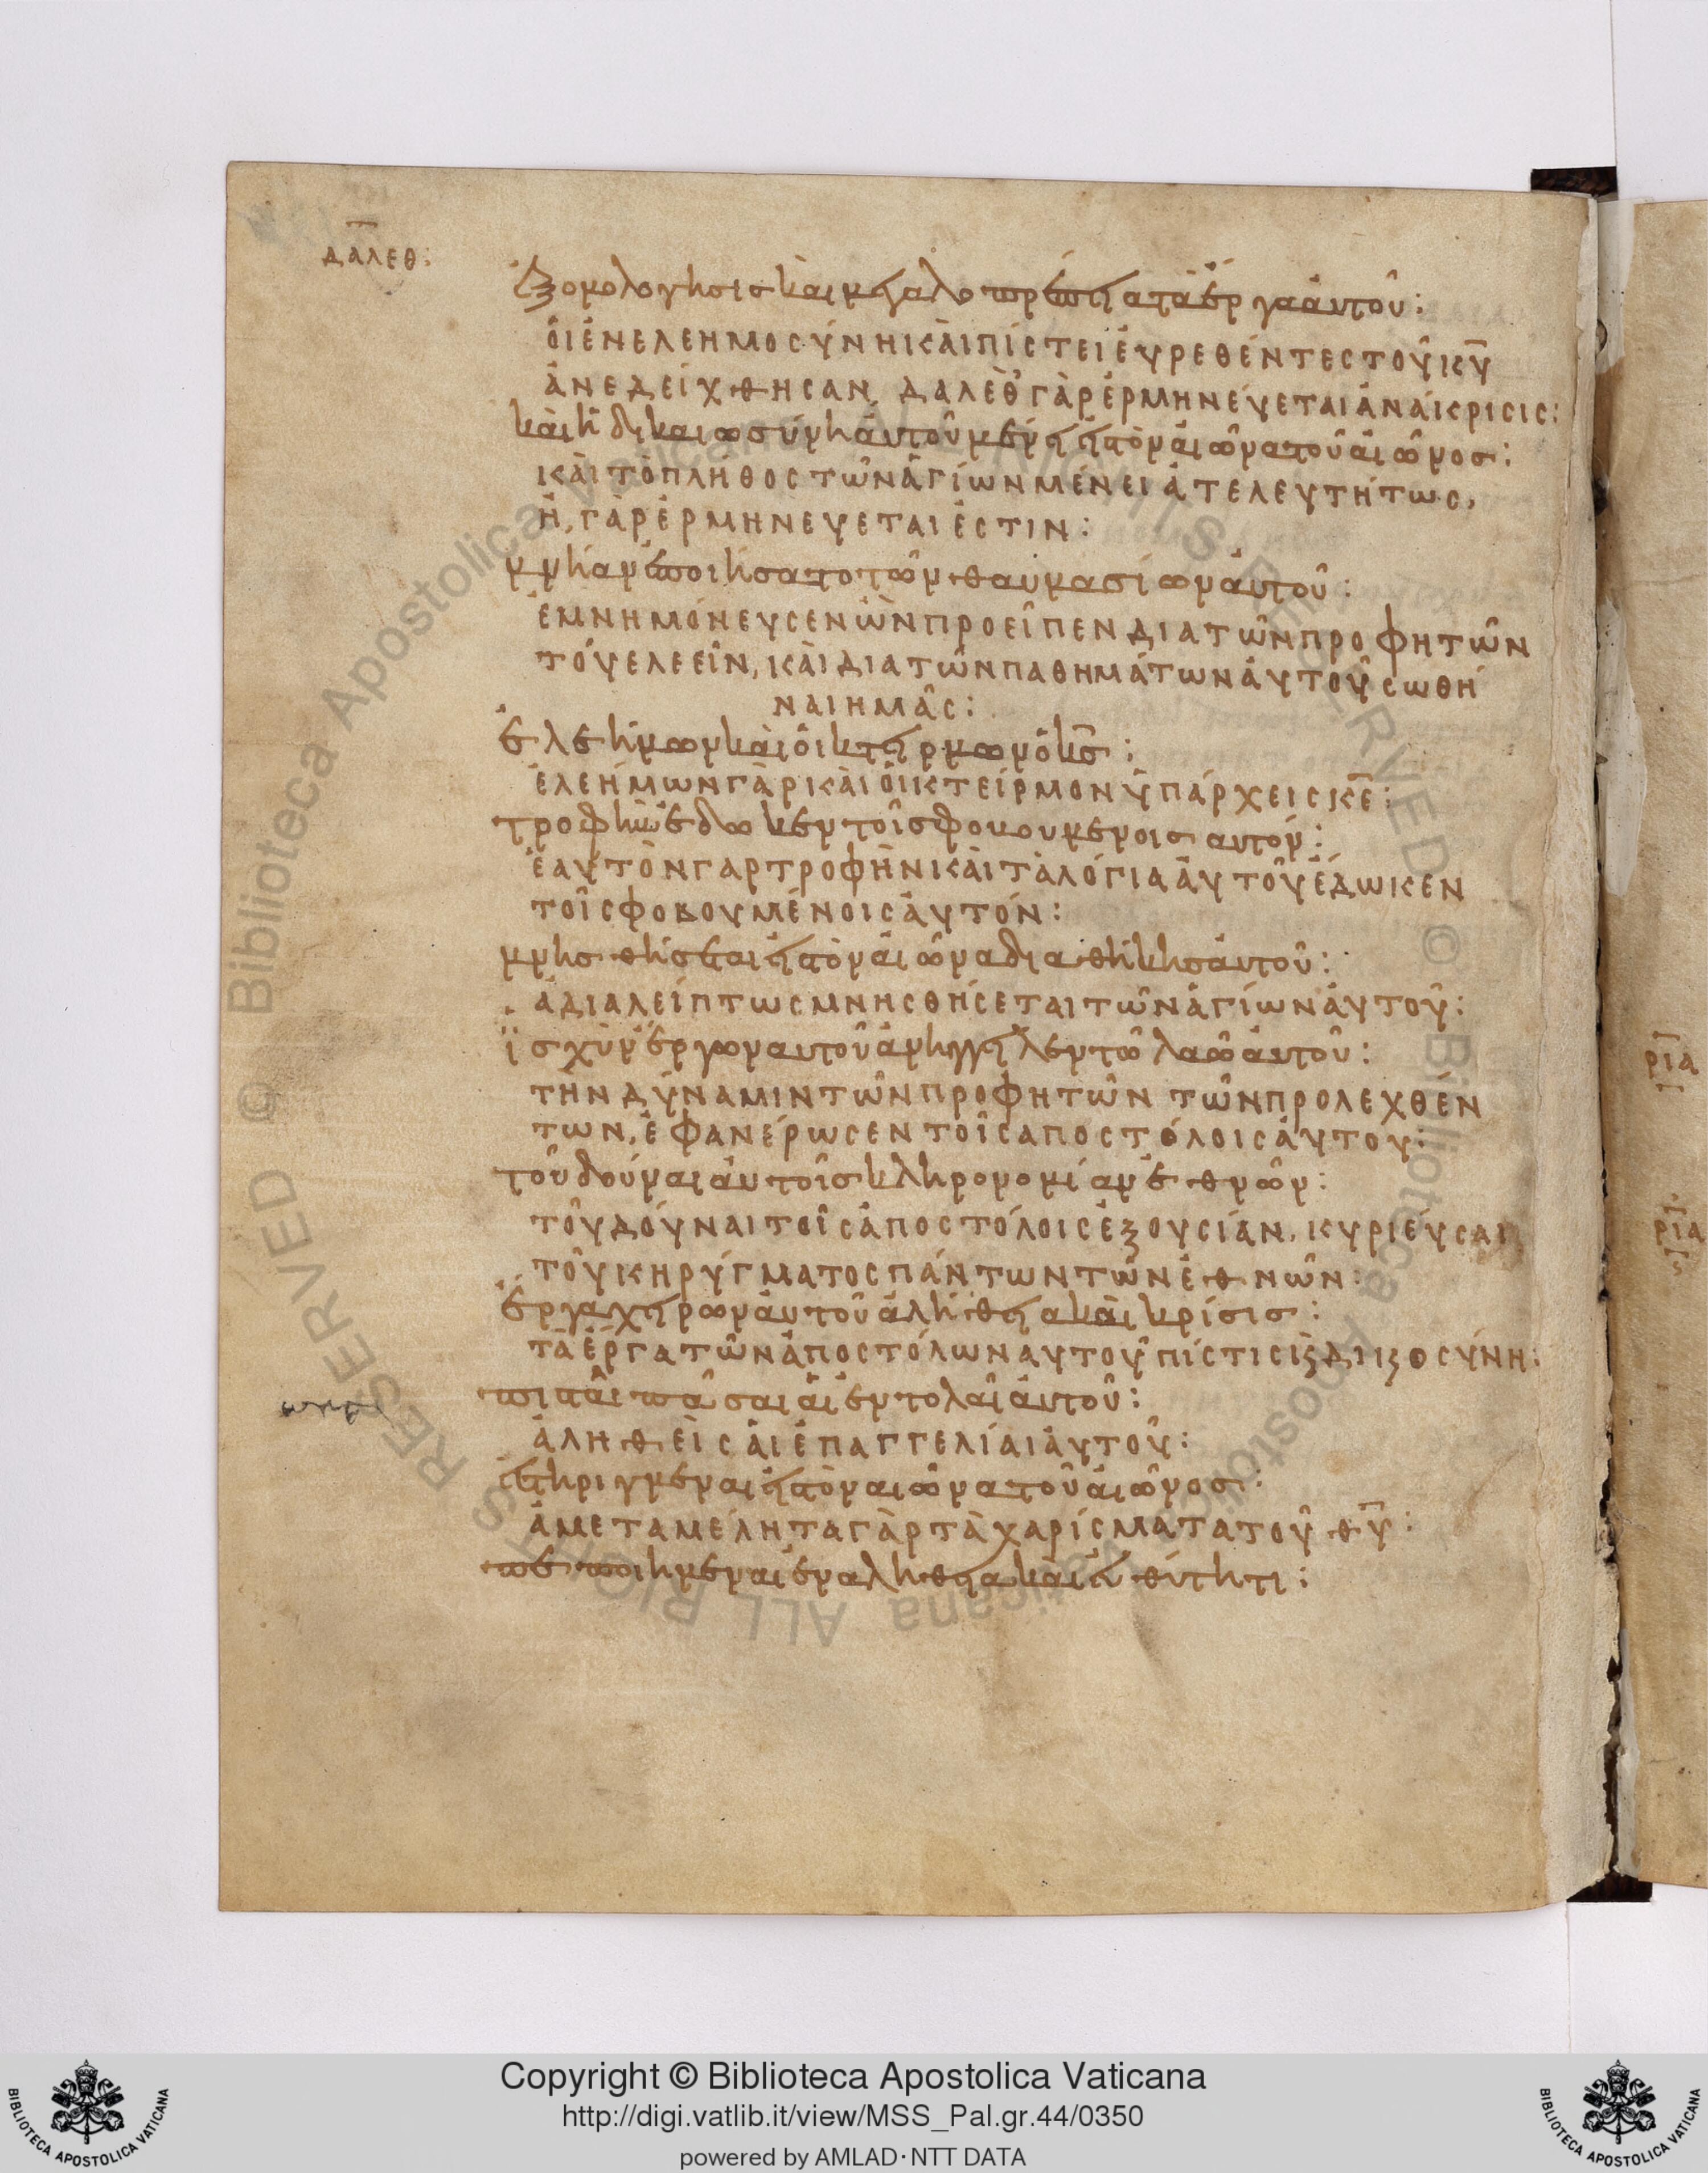 δάλεθ:
ἐξομολογησισ καὶ μεγαλοπρέπεια τὰ ἔργα ἀυτοῦ:
ὁι ἐν ελεημοσύνηι κὰι πίστει ἑυρεθέντες τοῦ κῡ
ἀνεδείχθησαν, δαλὲθ γὰρ ἑρμηνέυεται ἀνάκρισις:
κὰι ἡ δικαιωσύνη ἀυτοῦ μένει εἰς τὸν ἀιῶνα τοῦ ἀιῶνος:
κὰι τὸ πλῆθος τῶν ἁγίων μένει ἀτελευτήτως,
ἡ, γὰρ ἑρμηνευεται ἐστιν:
μνήαν ἐποιήσατο τῶν θαυμασίων ἀυτοῦ:
ἐμνημόνευσεν ὧν προεῖπεν δια τῶν προφητῶν
τόυ ελεεῖν, κὰι δια τῶν παθημάτων ἀυτοῦ σωθῆ
ναι ημᾶς:
ἐλεήμων κὰι ὀικτείρμων ὁ κ̄σ̄:
ἐλεήμων γὰρ κὰι ὀικτείρμον ὑπάρχεις κ̄ε̄:
τροφὴν ἔδωκεν τοῖσ φοβουμένοισ αυτόν:
ἑαυτὸν γαρ τροφὴν κὰι τὰ λόγια ἀυτοῦ ἔδωκεν
τοῖς φοβουμένοις ἀυτόν:
μνησθήσεται εἰς τὸν ἀιῶνα διαθήκησ ἀυτοῦ:
ἀδιαλείπτως μνησθήσεται τῶν ἁγίων ἀυτοῦ:
ϊσχὺν ἔργων αυτοῦ ἀνήγγειλεν τῶ λαῶ ἀυτοῦ:
την δύναμιν τῶν προφητῶν τῶν προλεχθέν
των, ἐφανέρωσεν τοῖς αποστόλοις ἀυτου:
τοῦ δούναι ἀυτοῖσ κληρονομίαν ἐθνῶν:
τοῦ δόυναι τοῖς ἀποστόλοις ἐξουσίαν, κυριέυσαι
τοῦ κηρύγματος πάντων τῶν ἐθνῶν:
ἔργα χειρων ἀυτοῦ ἀλήθεια κὰι κρίσισ:
τὰ ἔργα τῶν ἀποστόλων αυτοῦ πίστις κ̀ δικοσύνη:
πιταὶ πᾶσαι ἁι ἐντολαῖ ἀυτοῦ:
ἀληθεὶς ἁι ἐπαγγελίαι ἀυτοῦ:
ἐστηριγμέναι εἰς τὸν αιῶνα τοῦ ἀιῶνοσ:
ἀμεταμέλητα γὰρ τὰ χαρίσματα τοῦ θ̄ῡ:
πεποιημέναι ἐν αληθεια κὰι ἐυθύτητι:
ρια
ρια
Copyright © Biblioteca Apostolica Vaticana
http://digi.vatlib.it/view/MSS_Pal.gr.44/0350
powered by AMLAD·NTT DATA